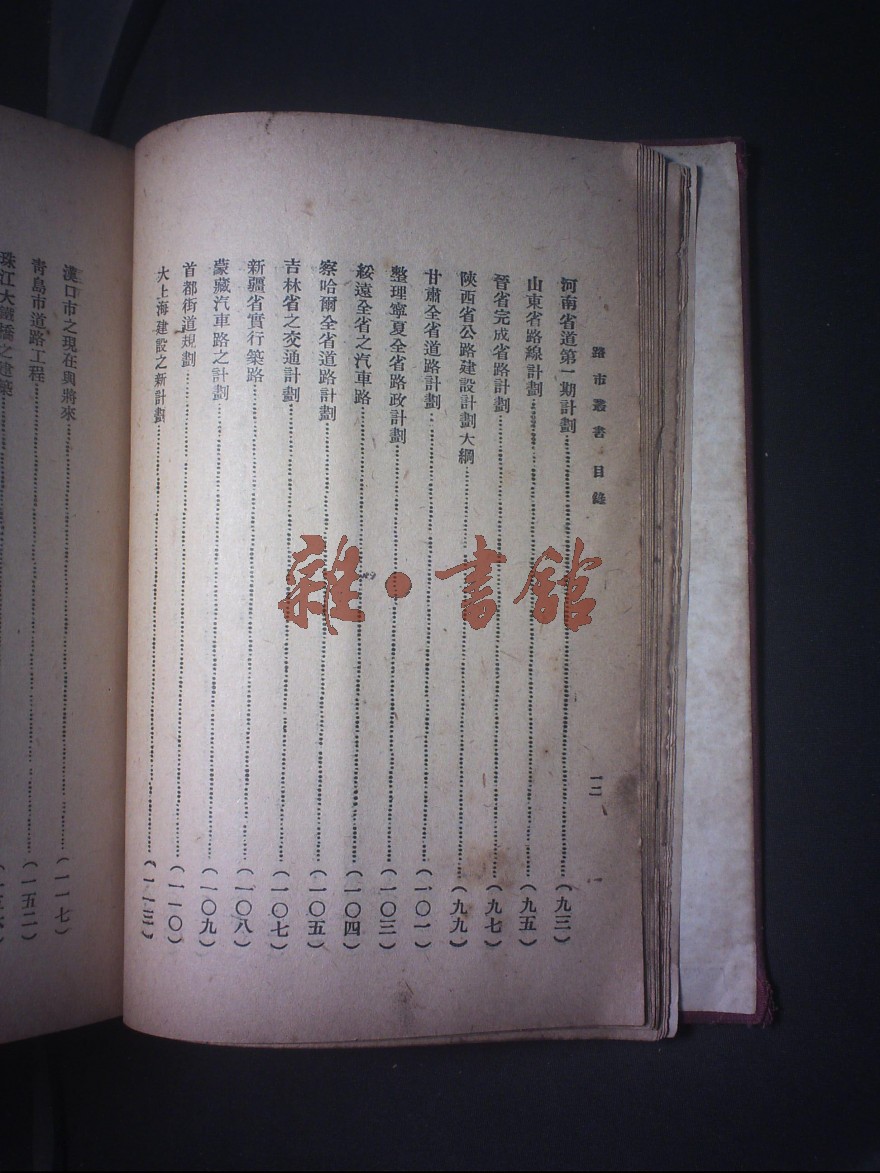 路市叢書 目錄
一二
河南省道第一期計劃……(九三)
山東省路線計劃……(九五)
晉省完成省路計劃……(九七)
陝西省公路建設計劃大綱……(九九)
甘肅全省道路計劃……(一〇一)
整理寧夏全省路政計劃……(一〇三)
綏遠全省之汽車路……(一〇四)
察哈爾全省道路計劃……(一〇五)
吉林省之交通計劃……(一〇七)
新疆省實行築路……(一〇八)
蒙藏汽車路之計劃……(一〇九)
首都街道規劃……(一一〇)
大上海建設之新計劃……(一一三)
漢口市之現在與將來……(一一七)
青島市道路工程……(一五二)
珠江大鐵橋之建築
雜·書館